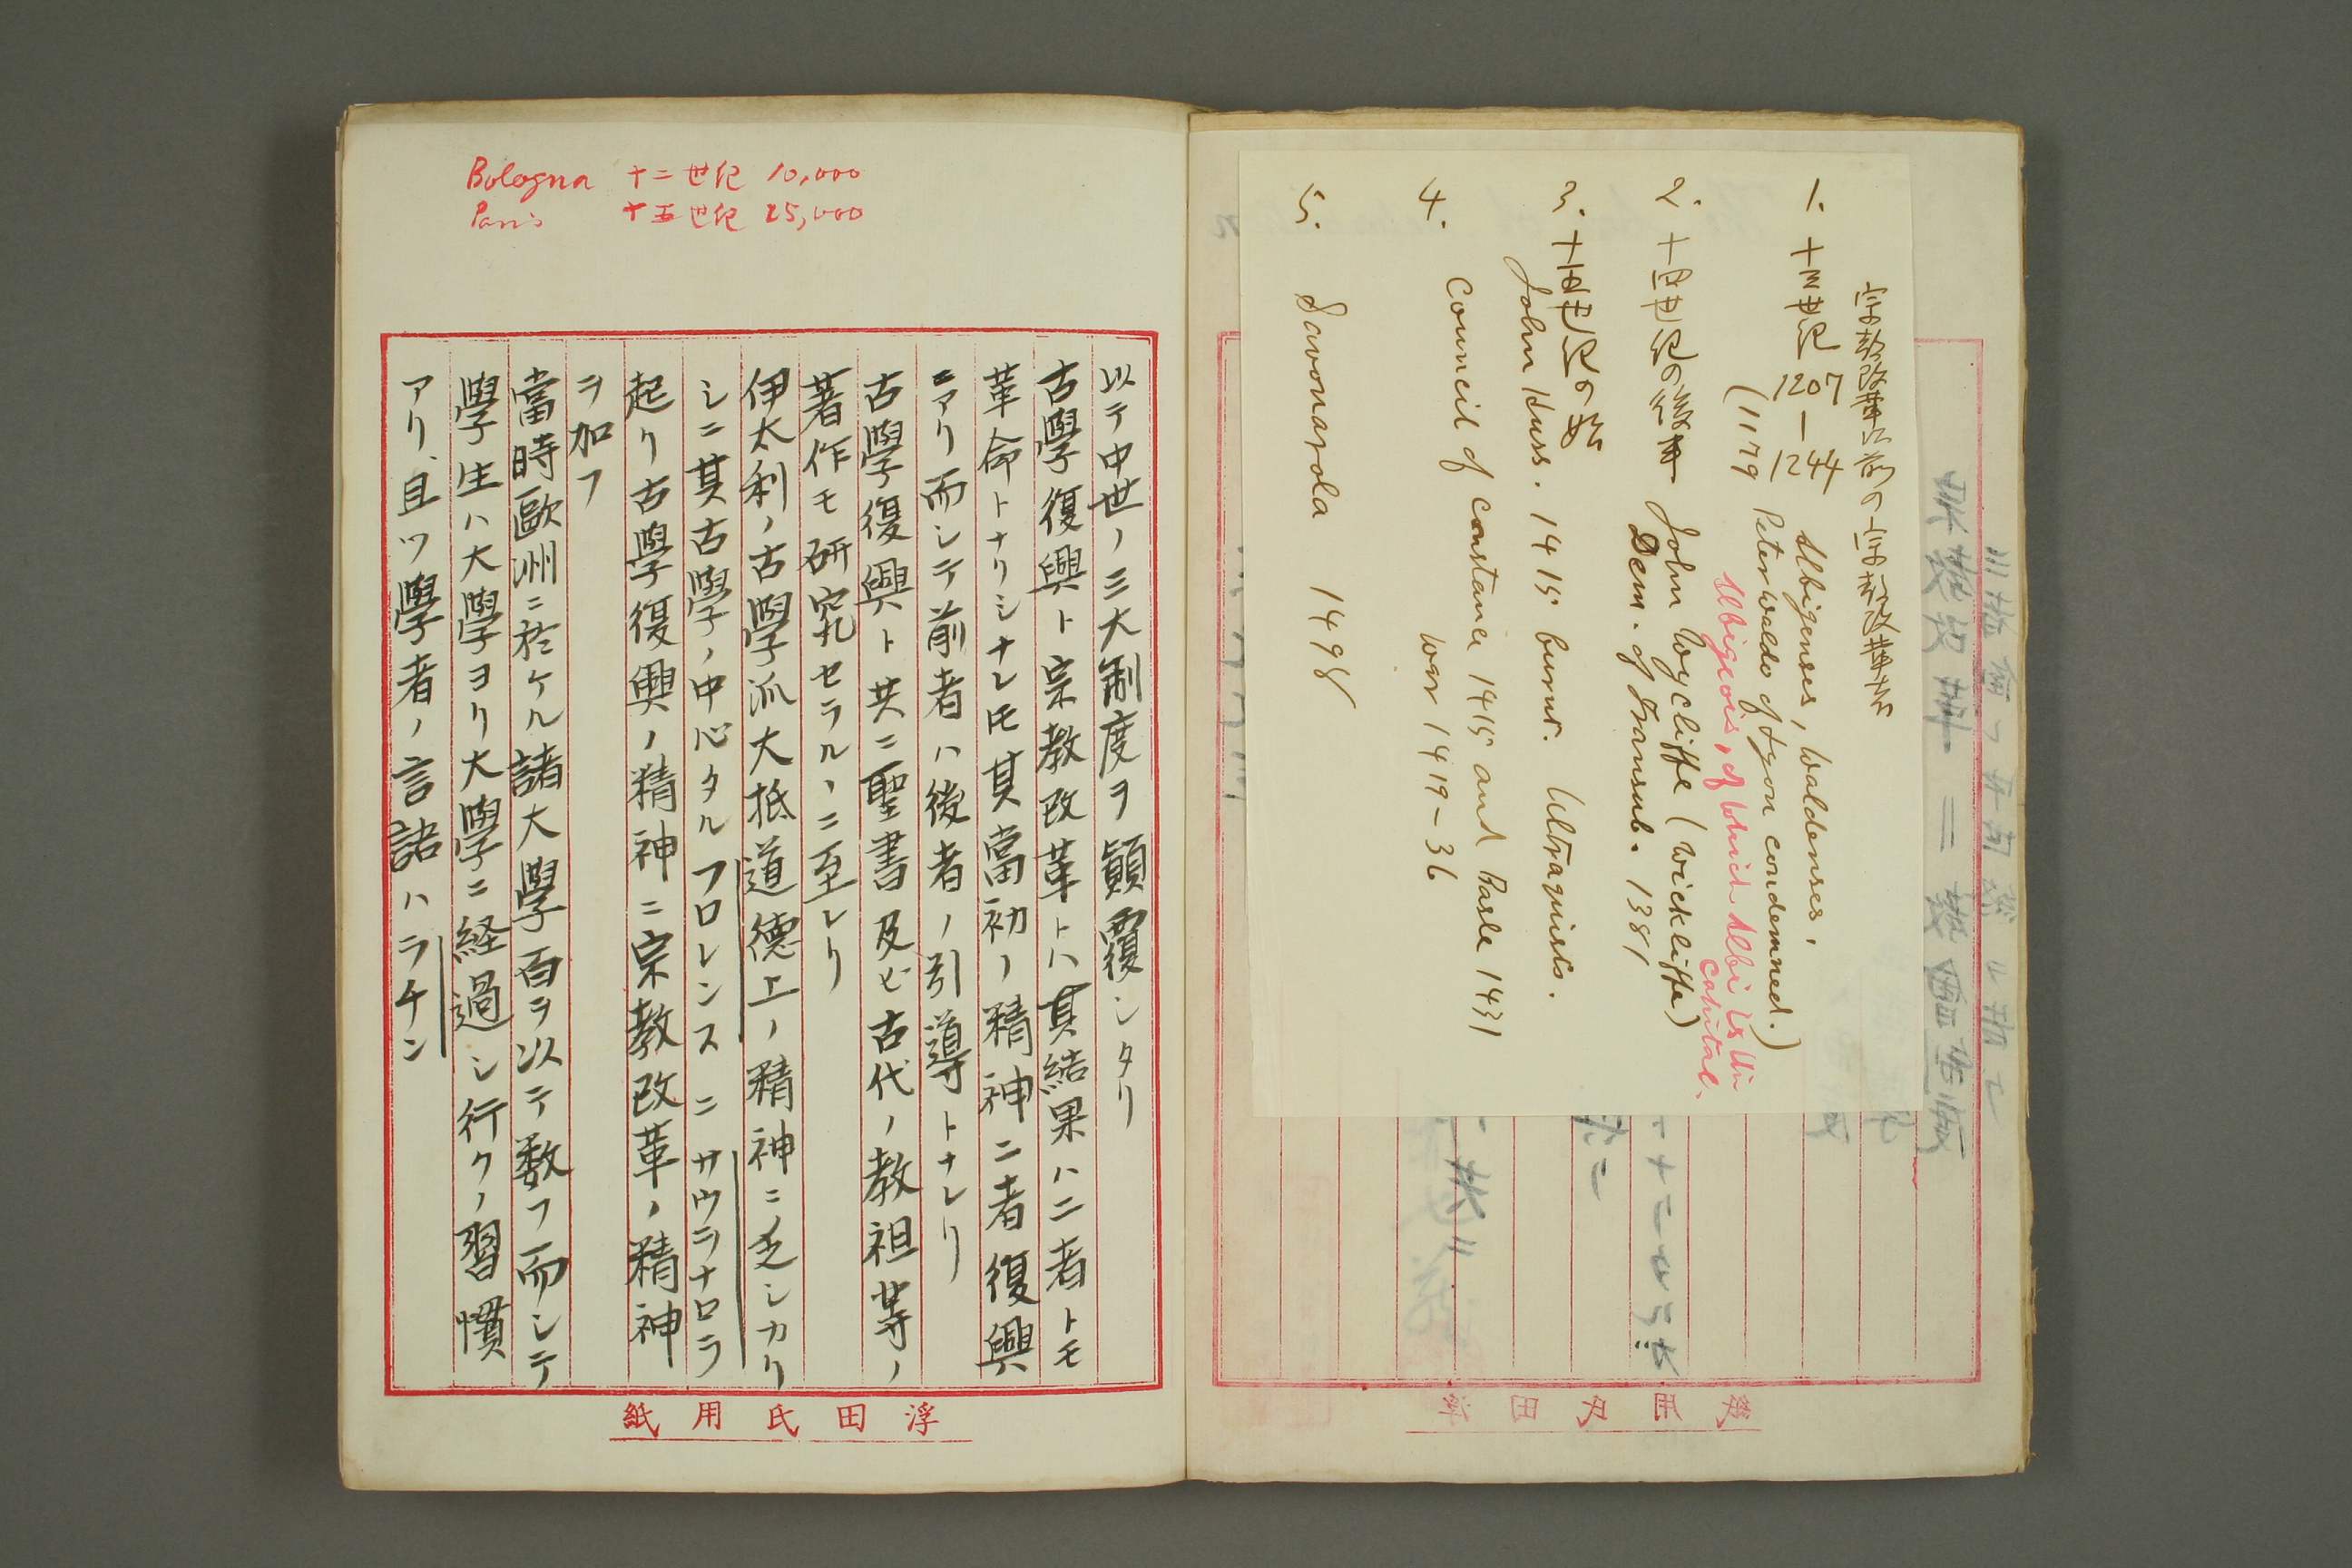 宗教改革以前の宗教改革者
1. 十三世紀 1207—1244 Albigenses, Waldenses.
(1179 Peter Waldo of Lyon condemned.)
Albigeois, of which Albi is the capital.
2. 十四世紀の終 John Wycliffe (Wickliffe)
Den. of Transub. 1381
3. 十五世紀の始
John Huss. 1415 burnt. Utraquists.
4. Council of Constance 1415 and Basle 1431
war 1419-36
5. Savonarola 1498
Bologna 十二世紀 10,000
Paris 十五世紀 25,000
以テ中世ノ三大制度ヲ顚覆シタリ
古學復興ト宗教改革トハ其結果ハ二者トモ
革命トナリシナレ𪜈其當初ノ精神ニ者復興
ニアリ而シテ前者ハ後者ノ引導トナレリ
古學復興ト共ニ聖書及ビ古代ノ教祖等ノ
著作モ研究セラルヽニ至レリ
伊太利ノ古學派大抵道德上ノ精神ニ乏シカリ
シニ其古學ノ中心タルフロレンスニサヴヲナロラ
起リ古學復興ノ精神ニ宗教改革ノ精神
ヲ加フ
當時歐洲ニ於ケル諸大學百ヲ以テ数フ而シテ
學生ハ大學ヨリ大學ニ経過シ行クノ習慣
アリ、且ツ學者ノ言語ハラチン
浮田氏用紙